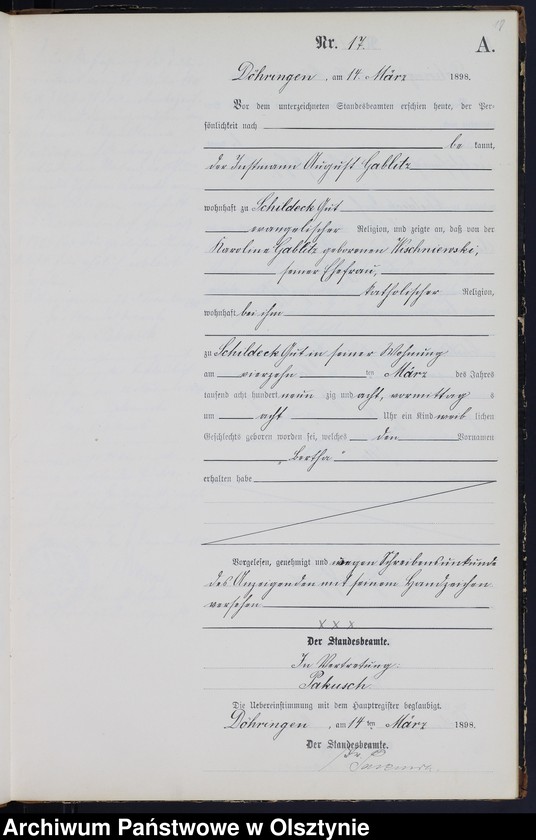 19
Nr. 17.
A.
Döhringen, am 14. März 1898.
Vor dem unterzeichneten Standesbeamten erschien heute, der Per-
sönlichkeit nach
be kannt,
der Instmann August Gablitz
wohnhaft zu Schildeck Gut
evangelischer Religion, und zeigte an, daß von der
Karoline Gablitz geborenen Wischniewski,
seiner Ehefrau,
katholischer Religion,
wohnhaft bei ihm
zu Schildeck Gut in seiner Wohnung
am vierzehn ten März des Jahres
tausend acht hundert neun zig und acht, vormittag s
um acht Uhr ein Kind weib lichen
Geschlechts geboren worden sei, welches den Vornamen
"Bertha"
erhalten habe
Vorgelesen, genehmigt und wegen Schreibensunkunde
des Anzeigenden mit seinem Handzeichen
versehen
x x x
Der Standesbeamte.
In Vertretung:
Pakusch
Die Uebereinstimmung mit dem Hauptregister beglaubigt.
Döhringen, am 14 ten März 1898.
Der Standesbeamte.
Archiwum Państwowe w Olsztynie